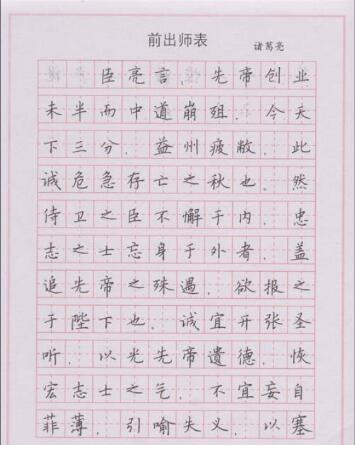 前出师表
诸葛亮
臣亮言.先帝创业
未半而中道崩殂.今天
下三分.益州疲敝.此
诚危急存亡之秋也.然
侍卫之臣不懈于内.忠
志之士忘身于外者.盖
追先帝之殊遇.欲报之
于陛下也.诚宜开张圣
听.以光先帝遗德.恢
宏志士之气.不宜妄自
菲薄.引喻失义.以塞